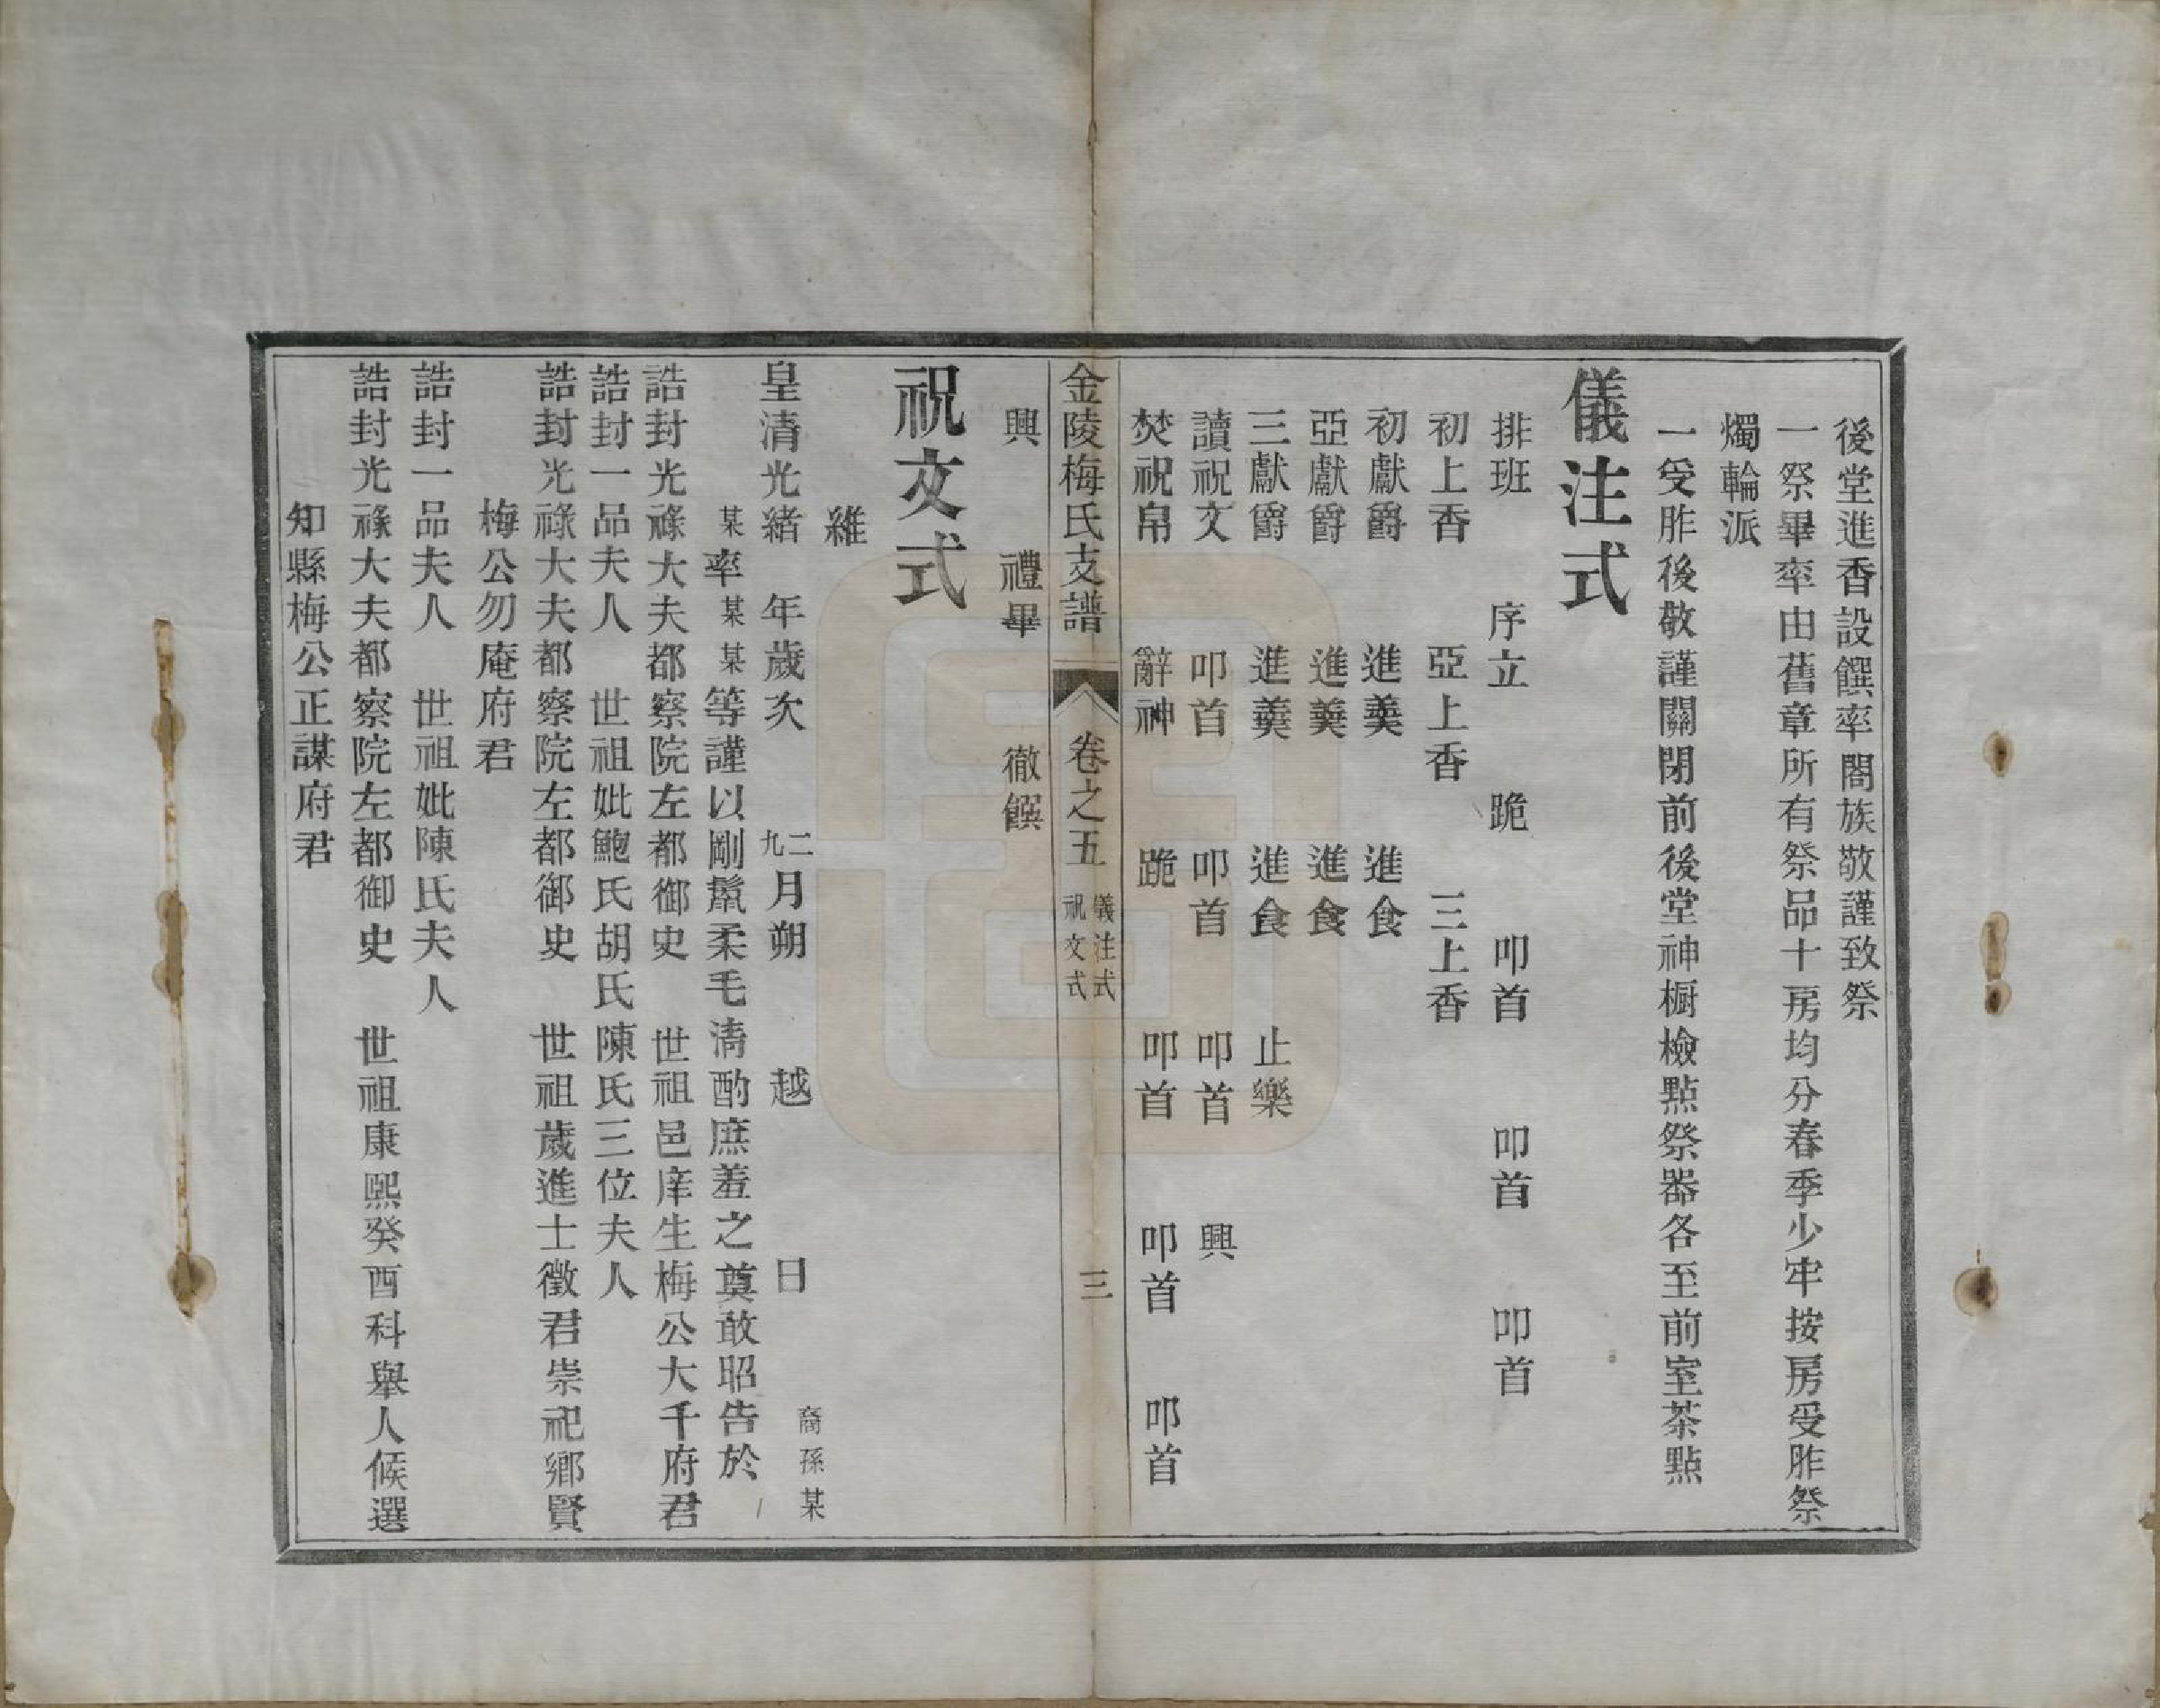 後堂進香設饌率閤族敬謹致祭
一祭畢率由舊章所有祭品十房均分春季少牢按房受胙祭
燭輪派
一受胙後敬謹關閉前後堂神橱檢點祭器各至前室茶點
儀注式
排班　序立　跪　叩首　叩首　叩首
初上香　亞上香　三上香
初獻爵　進羹　進食
亞獻爵　進羹　進食
三獻爵　進羹　進食　止樂
讀祝文　叩首　叩首　叩首　興
焚祝帛　辭神　跪　叩首　叩首　叩首
金陵梅氏支譜　卷之五　儀注式　祝文式　三
興　禮畢　徹饌
祝文式
維
皇清光緒　年歲次　二九月朔　越　日　裔孫某
某率某某等謹以剛鬣柔毛淸酌庶羞之奠敢昭告於
誥封光祿大夫都察院左都御史　世祖邑庠生梅公大千府君
誥封一品夫人　世祖妣鮑氏胡氏陳氏三位夫人
誥封光祿大夫都察院左都御史　世祖歲進士徵君崇祀鄉賢
梅公勿庵府君
誥封一品夫人　世祖妣陳氏夫人
誥封光祿大夫都察院左都御史　世祖康熙癸酉科舉人候選
知縣梅公正謀府君